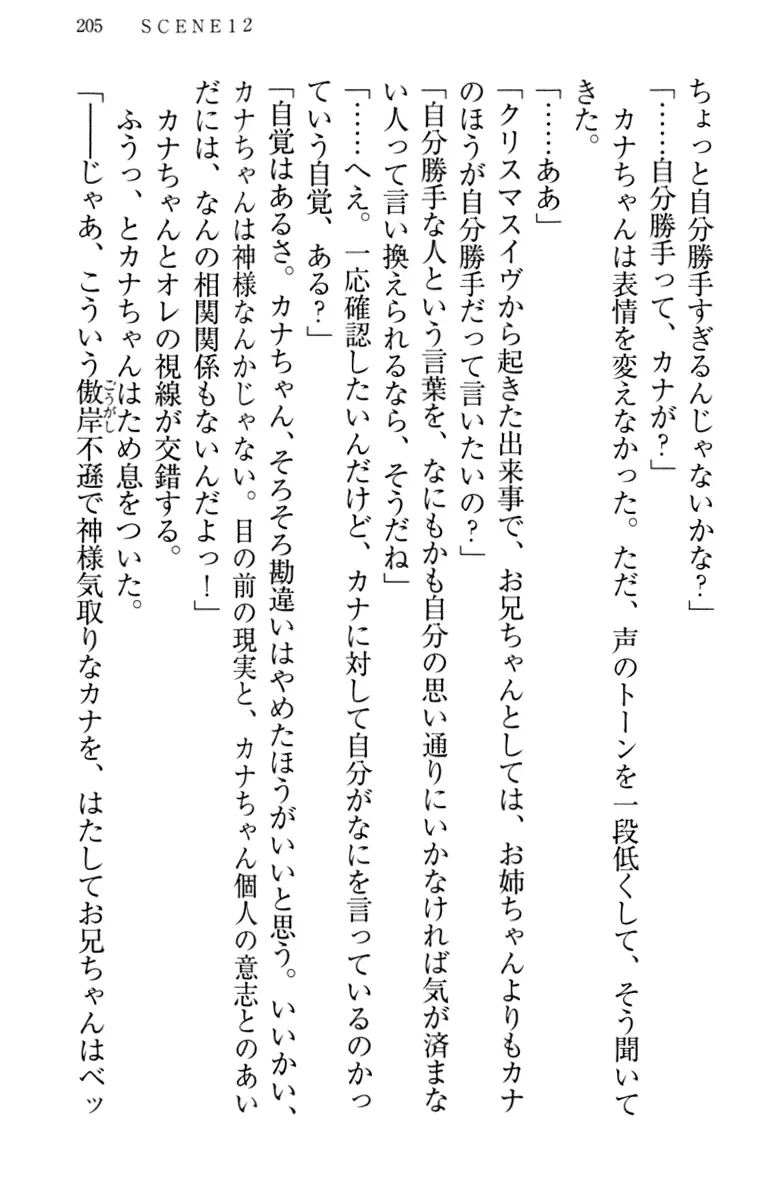 205 SCENE12
ちょっと自分勝手すぎるんじゃないかな？」
「……自分勝手って、カナが？」
　カナちゃんは表情を変えなかった。ただ、声のトーンを一段低くして、そう聞いて
きた。
「……ああ」
「クリスマスイヴから起きた出来事で、お兄ちゃんとしては、お姉ちゃんよりもカナ
のほうが自分勝手だって言いたいの？」
「自分勝手な人という言葉を、なにもかも自分の思い通りにいかなければ気が済まな
い人って言い換えられるなら、そうだね」
「……へえ。一応確認したいんだけど、カナに対して自分がなにを言っているのかっ
ていう自覚、ある？」
「自覚はあるさ。カナちゃん、そろそろ勘違いはやめたほうがいいと思う。いいかい、
カナちゃんは神様なんかじゃない。目の前の現実と、カナちゃん個人の意志とのあい
だには、なんの相関関係もないんだよっ！」
　カナちゃんとオレの視線が交錯する。
　ふうっ、とカナちゃんはため息をついた。
「――じゃあ、こういう傲岸不遜で神様気取りなカナを、はたしてお兄ちゃんはベッ
ごうがし